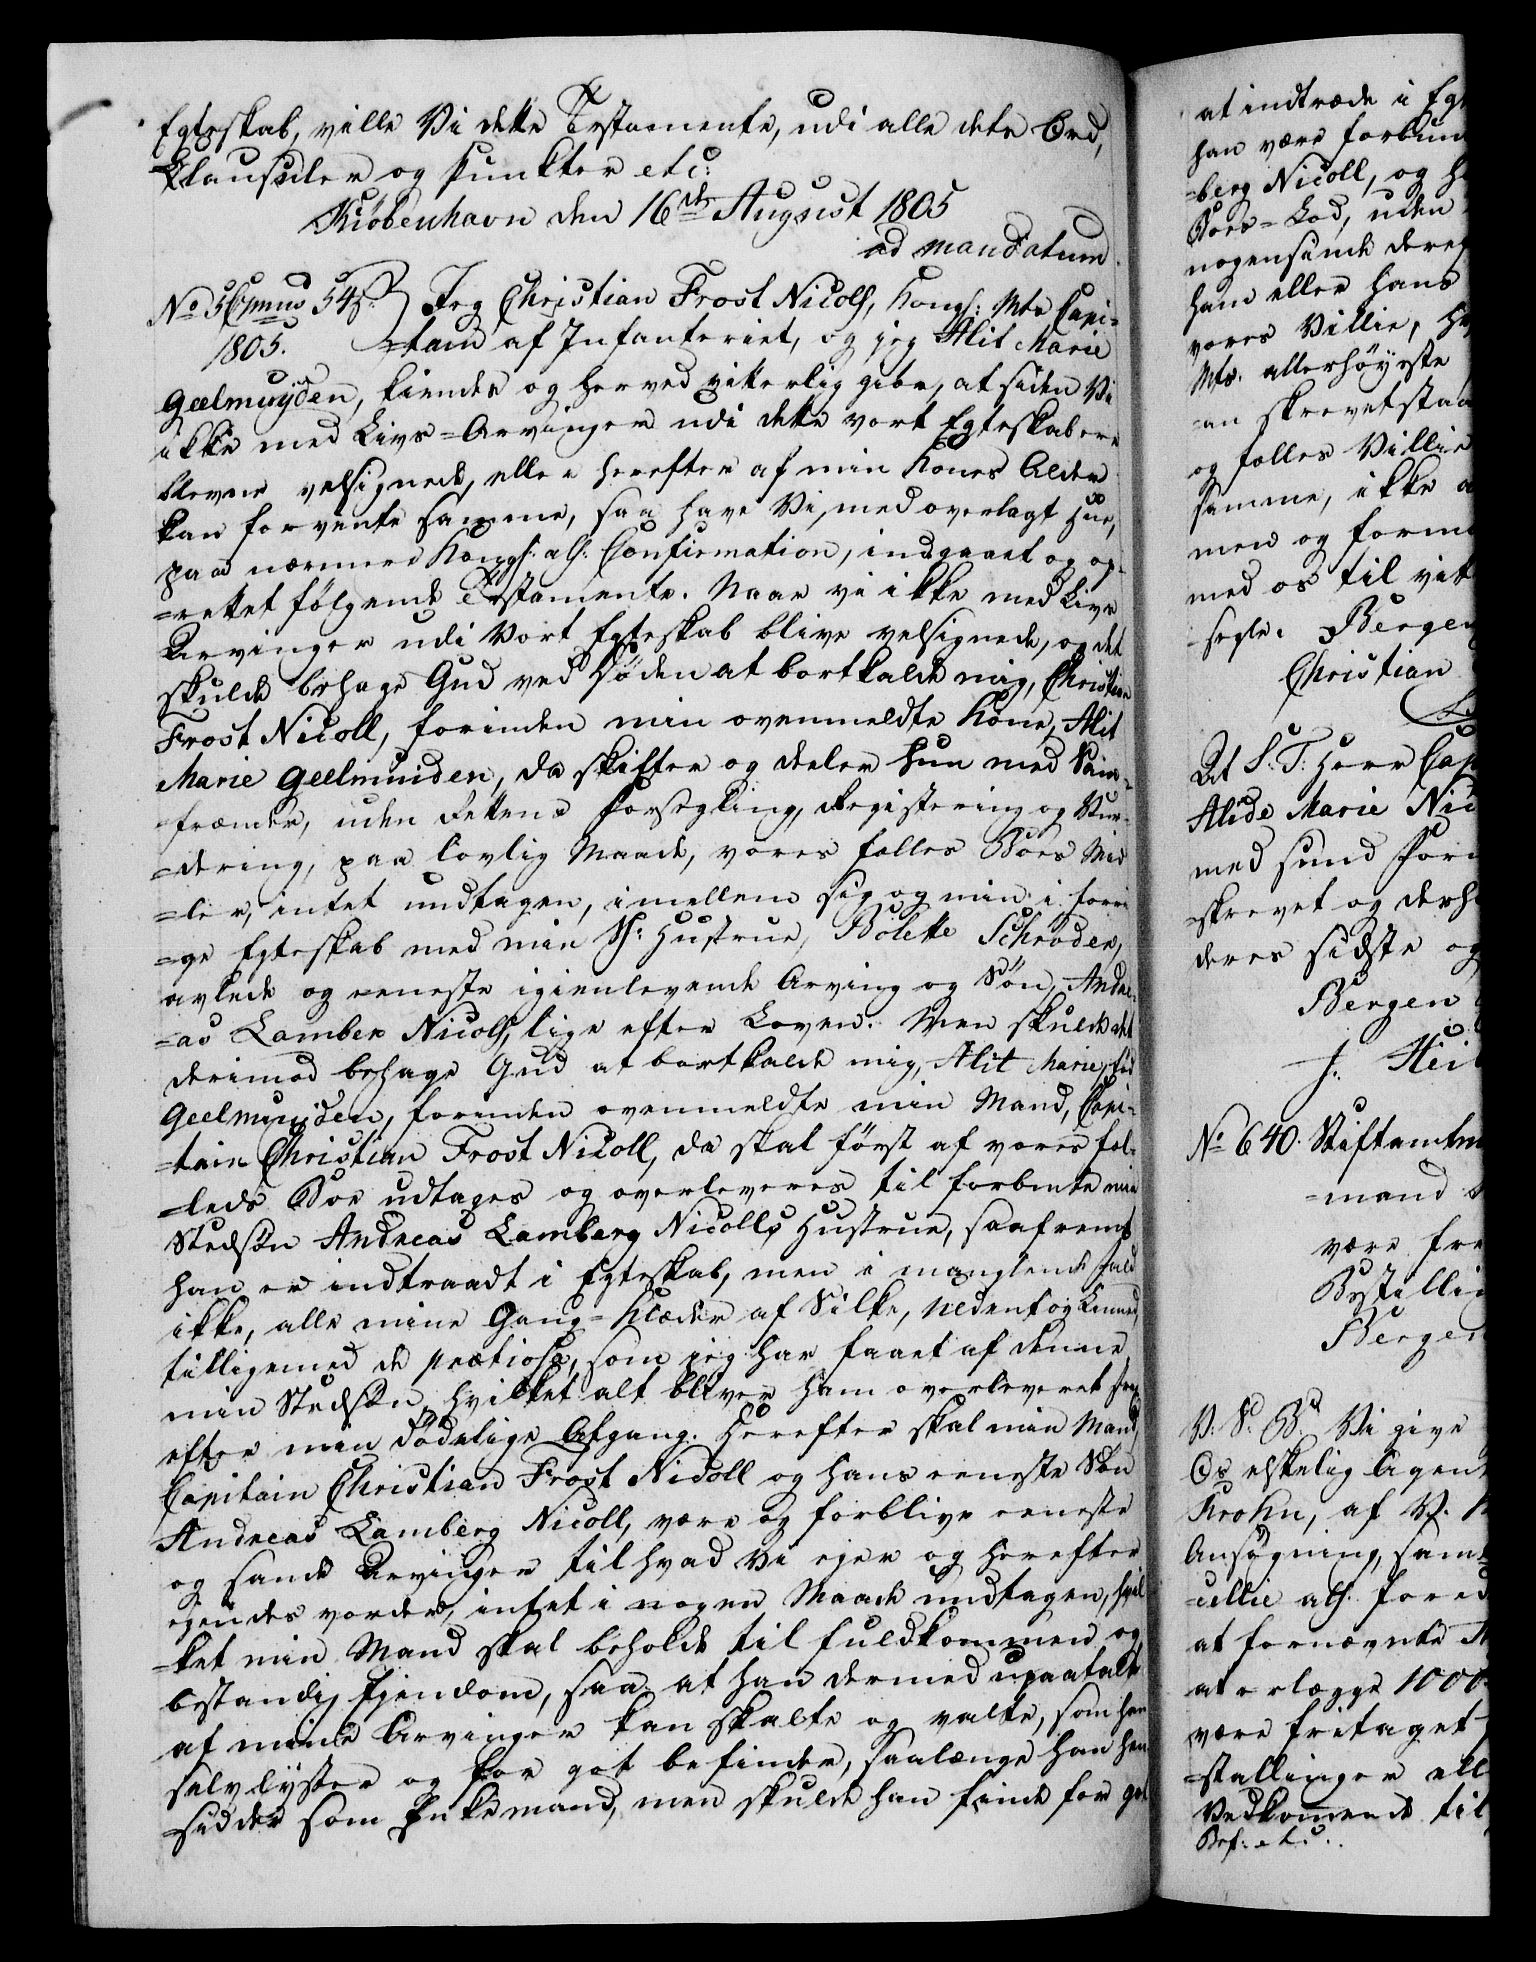 Egteskab, ville Vi dette Testamente, udi alle dets Ord,
Clausuler og Punkter etc:
Kiöbenhavn den 16de August 1805
ad mandatum
No 545.
1805.
Jeg Christian Frost Nicoll, Kongl: Mts Capi-
=tain af Infanteriet, og jeg Alit Marie
Geelmuyden, kiendes og herved vitterlig giöre, at siden Vi
ikke med Livs=Arvinger udi dette vort Egteskab ere
blevne velsignede, eller herefter af min Kones Alder
kan forvente samme, saa have Vi, med overlagt Hue,
paa nærmere Kongl: all: Confirmation, indgaaet og op-
=rettet følgende Testamente. Naar vi ikke med Livs
Arvinger udi Vort Egteskab blive velsignede, og det
skulde behage Gud ved Døden at bortkalde mig, Christian
Frost Nicoll, forinden min ovenmeldte Kone, Alit
Marie Geelmuiden, da skifter og deeler hun med Sam-
=frænder, uden Rettens Forsegling, Registering og Vur-
=dering, paa lovlig Maade, vores fælles Boes Mid
=ler, intet undtagen, imellem sig og min i forri
=ge Egteskab med min Sl: Hustrue, Bolette Schrøder,
avlede og eeneste igienlevende Arving og Søn, Andre-
=as Lamberg Nicoll, lige efter Loven. Men skulde det
derimod behage Gud at bortkalde mig, Alit Marie, fød
Geelmuyden, forinden ovenmeldte min Mand, Capi-
=tain Christian Frost Nicoll, da skal først af vores fæl-
=leds Boe udtages og overleveres til forbenete min
Stedsøn Andreas Lamberg Nicolls Hustrue, saafremt
han er indtraadt i Egteskab, men i manglende Fald
ikke, alle mine Gang=Klæder af Silke, uldent og Linned,
tilligemed de prætiosa, som jeg har faaet af denne
min Stedsøn, hvilket alt bliver ham overleveret strax
efter min dødelige Afgang. Herefter skal min Mand,
Capitain Christian Frost Nicoll og hans eeneste Søn
Andreas Lamberg Nicoll, være og forblive eeneste
og sande Arvinger til hvad Vi ejer og herefter
ejendes vorder, intet i nogen Maade undtagen, hvil
=ket min Mand skal beholde til fuldkommen og
bestandig Ejendom, saa at han dermed upaatalt
af mine Arvinger kan skalte og valte, som han
selv lyster og for got befinder, saalænge han hen
=sidder som Enkemand, men skulde han finde for got
at indtræde i Egt
han være forbun
=berg Nicoll, og h
Boes=Lod, uden
nogensinde deref
ham eller hans
vores Villie, h
Mts. allerhøyeste
=an skrevet staa
og fælles Villie
samme, ikke a
men og form
med os til vit
segle. Bergen
Christian
At S. T. Herr Cap
Alide Marie Nic
med sund Forn
=skrevet og derh
deres sidste og
Bergen
J. Hei
No 640. Stiftamtm
=mand
være fre
Bestilli
Bergen
V. S. B. Vi give
Os elskelig Agent
Krohn, af V. K
Ansøgning, sam
=cellie all. fored
at fornævnte
at erlægge 1000
være fritaget
=stallinger ell
Vedkommende til
Bef: etc..